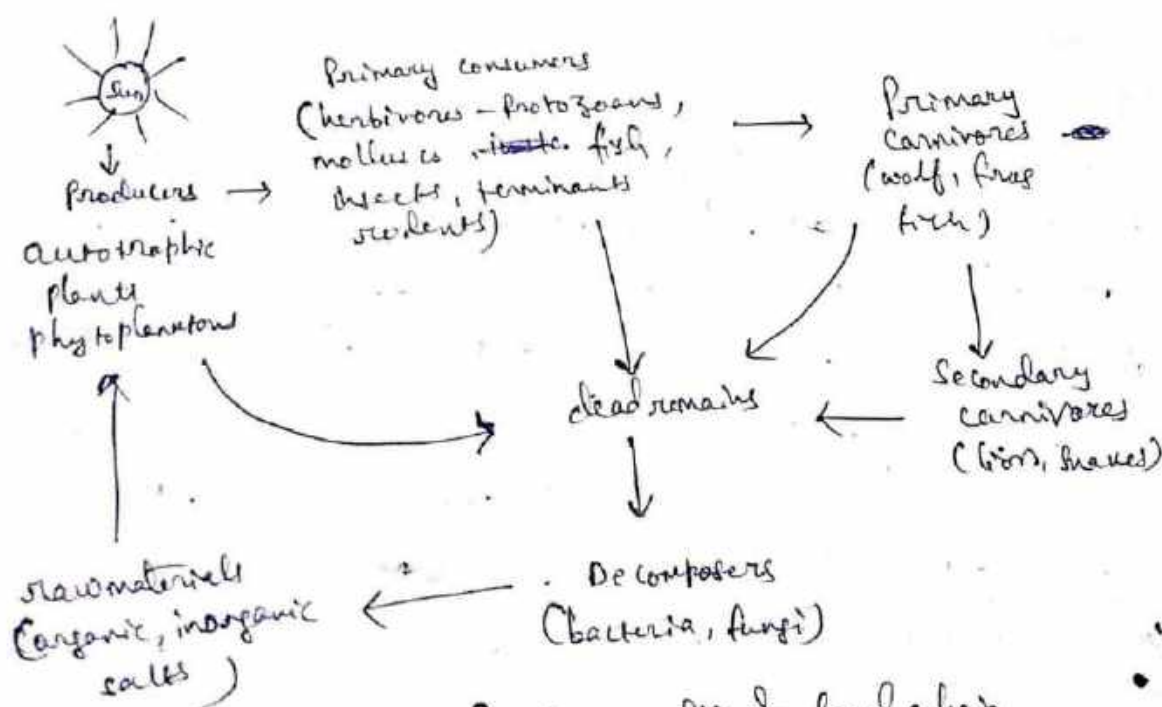 Sun
Producers
autotrophic
plants
phytoplanktons
Primary consumers
(herbivores - Protozoans,
molluscs, fish,
insects, terminants
rodents)
Primary
carnivores
(wolf, frog
fish)
Secondary
carnivores
(lion, snakes)
dead remains
Decomposers
(bacteria, fungi)
raw materials
(organic, inorganic
salts)
food chain